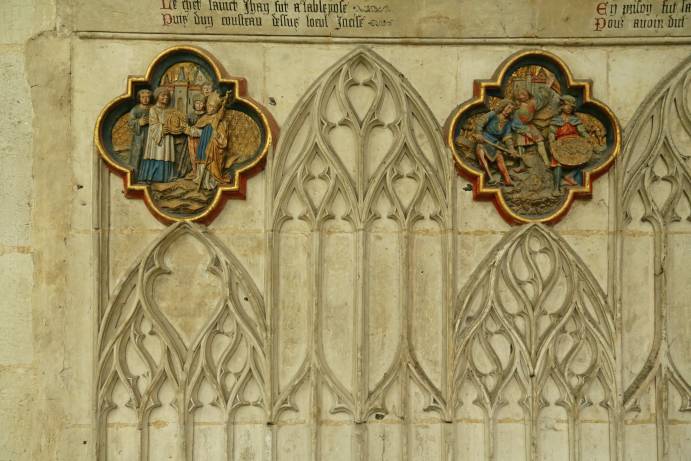 Le chef sainct Jhan fut a table pose
Puis dun cousteau dessus loeul
En prison fut
Pour avoir dit